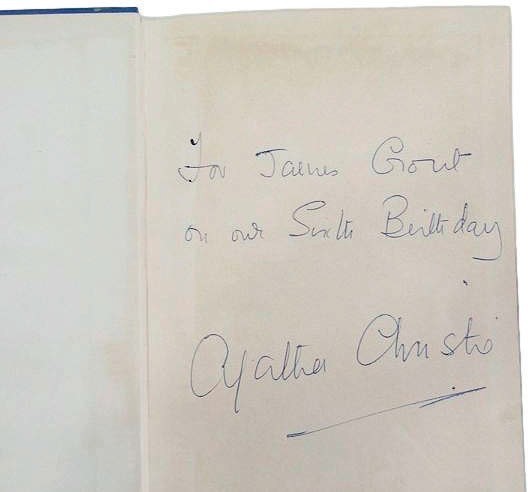 For James Grout
on our Sixth Birthday
Agatha Christie